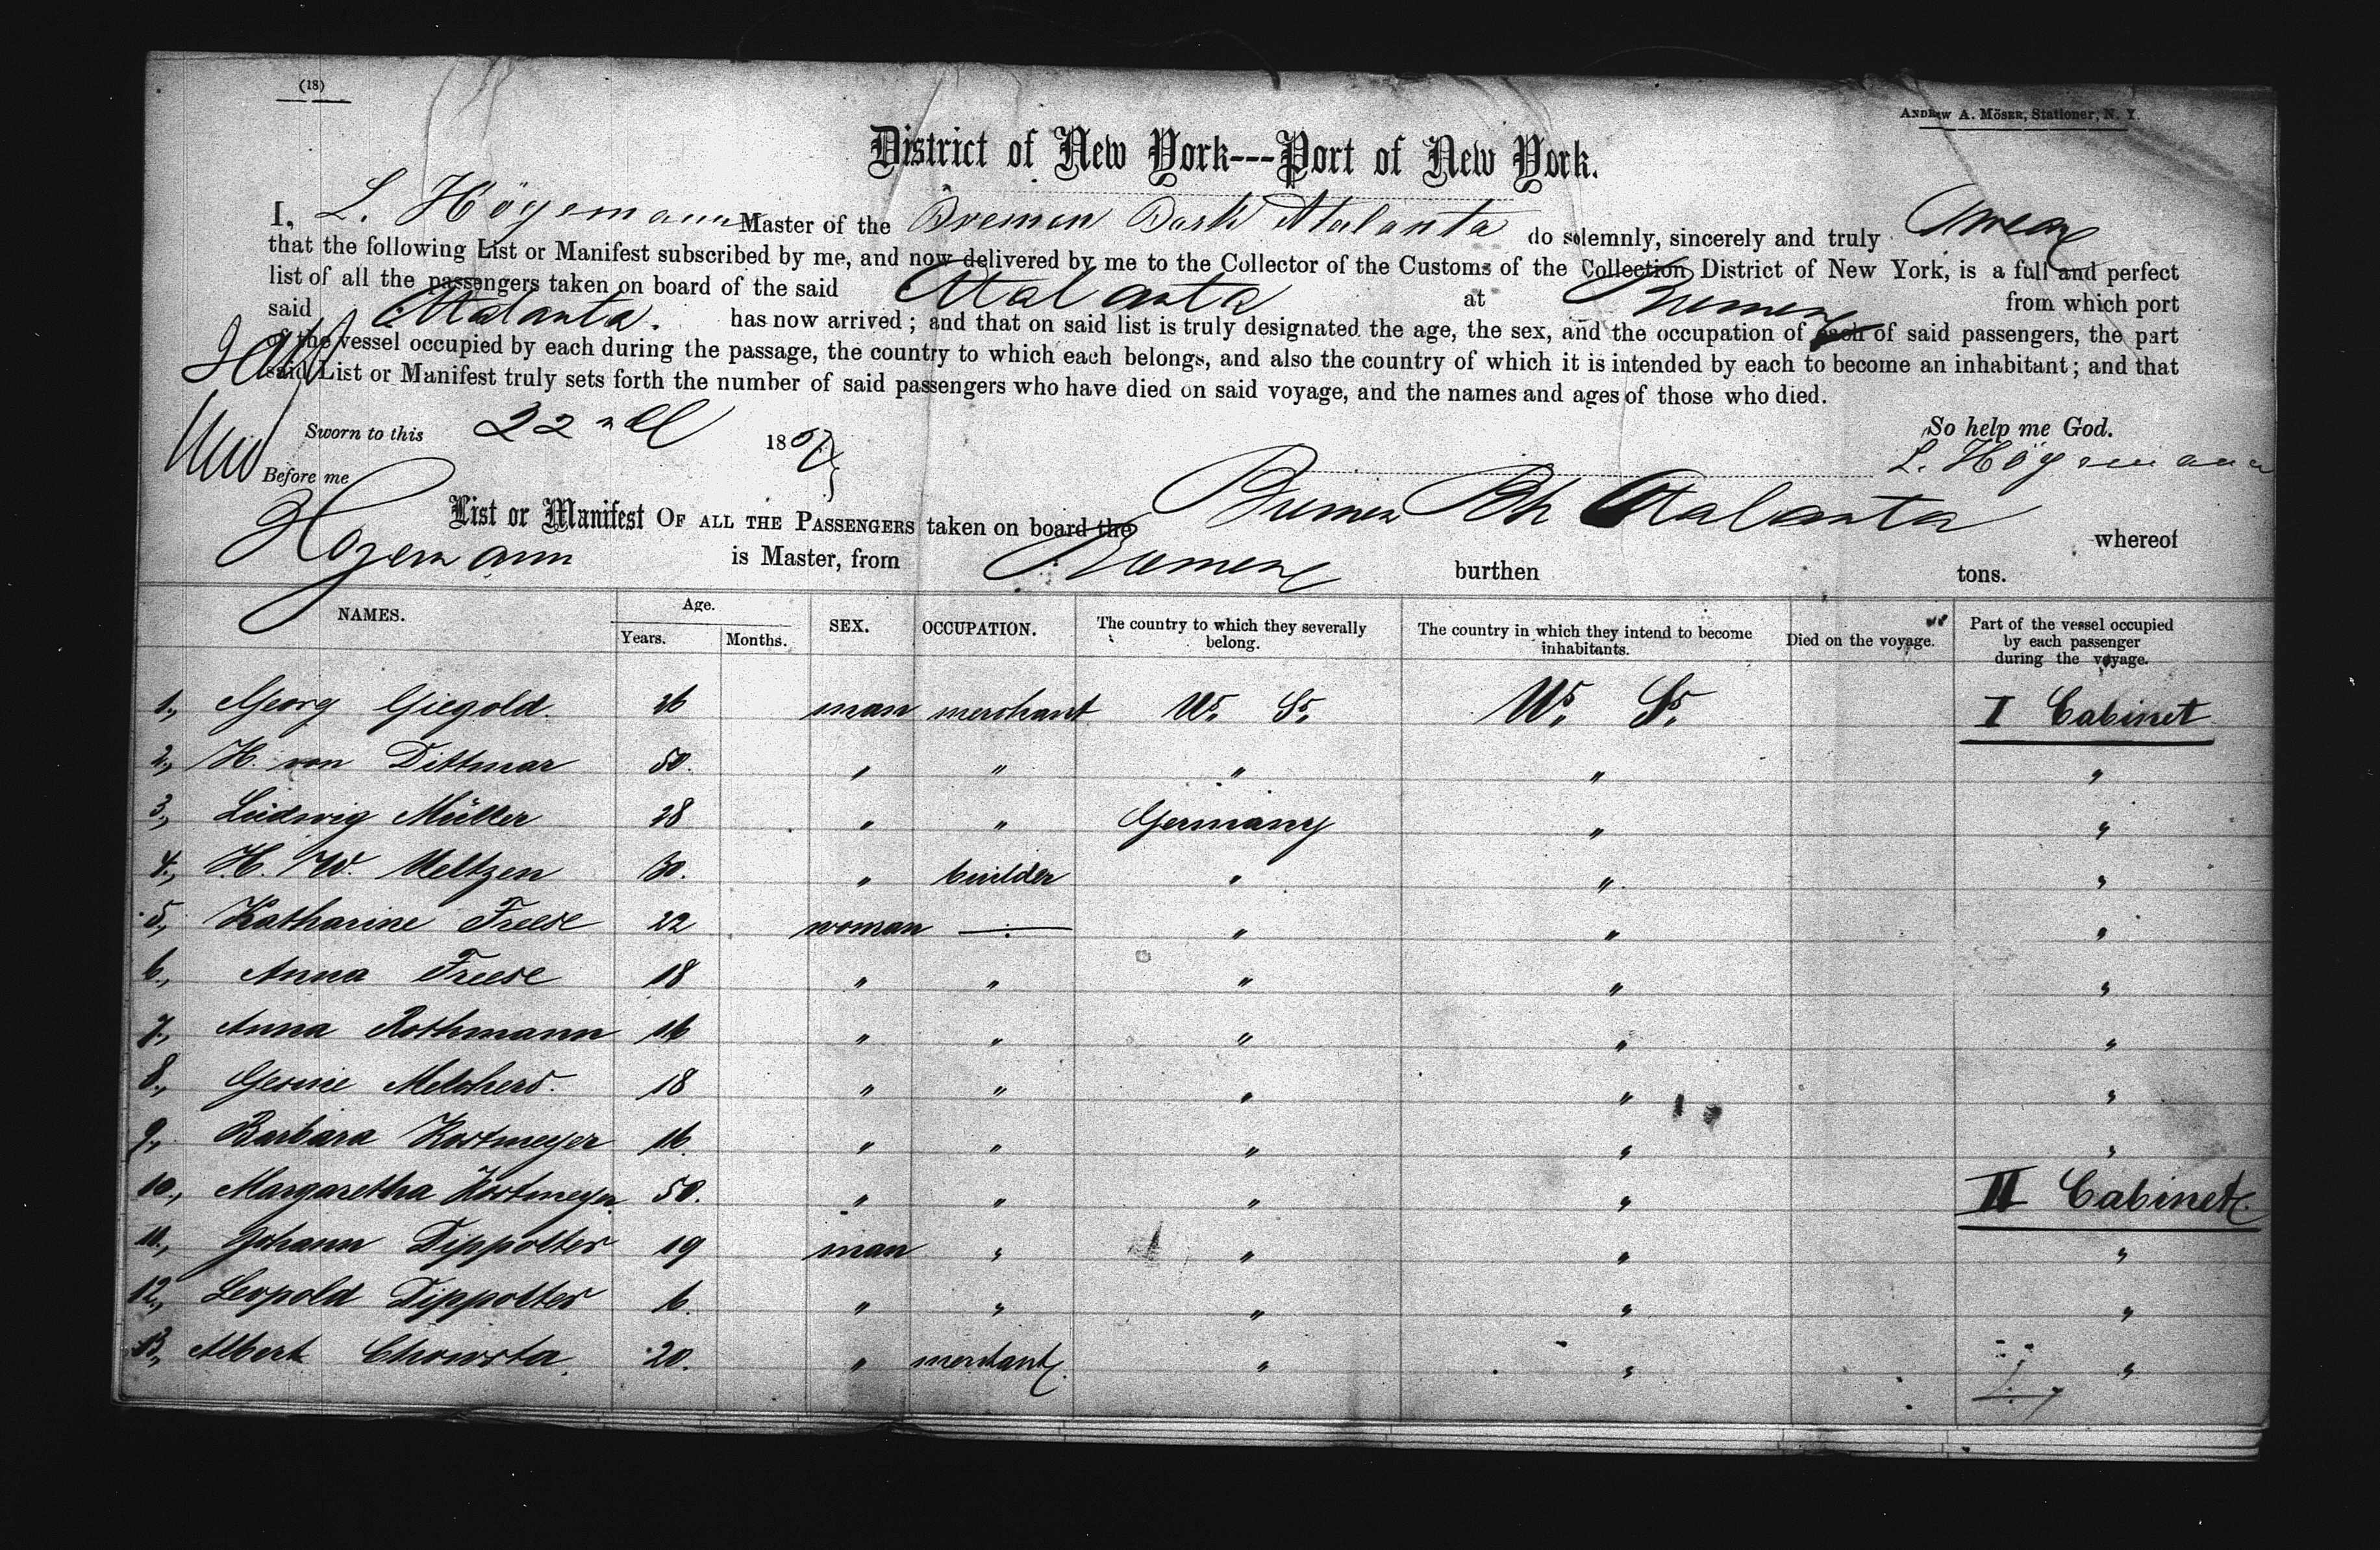 (18)
ANDREW A. MÖSER, Stationer, N. Y.
District of New York---Port of New York.
I, L. Högemann Master of the Bremen Bark Atalanta do solemnly, sincerely and truly swear
that the following List or Manifest subscribed by me, and now delivered by me to the Collector of the Customs of the Collection District of New York, is a full and perfect
list of all the passengers taken on board of the said Atalanta at Bremen from which port
said Atalanta. has now arrived; and that on said list is truly designated the age, the sex, and the occupation of each of said passengers, the part
of the vessel occupied by each during the passage, the country to which each belongs, and also the country of which it is intended by each to become an inhabitant; and that
said List or Manifest truly sets forth the number of said passengers who have died on said voyage, and the names and ages of those who died.
Sworn to this 22nd 18
So help me God.
Before me
L. Högemann
List or Manifest OF ALL THE PASSENGERS taken on board the Bremen Bk Atalanta whereof
Hogemann is Master, from Bremen burthen tons.
NAMES. Age. Years. Months. SEX. OCCUPATION. The country to which they severally belong. The country in which they intend to become inhabitants. Died on the voyage. Part of the vessel occupied by each passenger during the voyage.
1., Georg Giegold. 26 man merchant U. S. U. S. I Cabinet
2., H. von Dittmar 50. " " " " "
3., Ludwig Müller 28 " " Germany " "
4., H. W. Ueltzen 30. " builder " " "
5., Katharine Freese 22 woman — " " "
6., Anna Freese 18 " " " " "
7., Anna Rothmann 16 " " " " "
8., Gesine Melchers. 18 " " " " "
9., Barbara Kortmeyer 16. " " " " "
10., Margaretha Kortmeyer 50. " " " " II Cabinet.
11., Johann Dippolter 19 man " " " "
12., Leopold Dippolter 6. " " " " "
13., Albert 20. " merchant. " " "